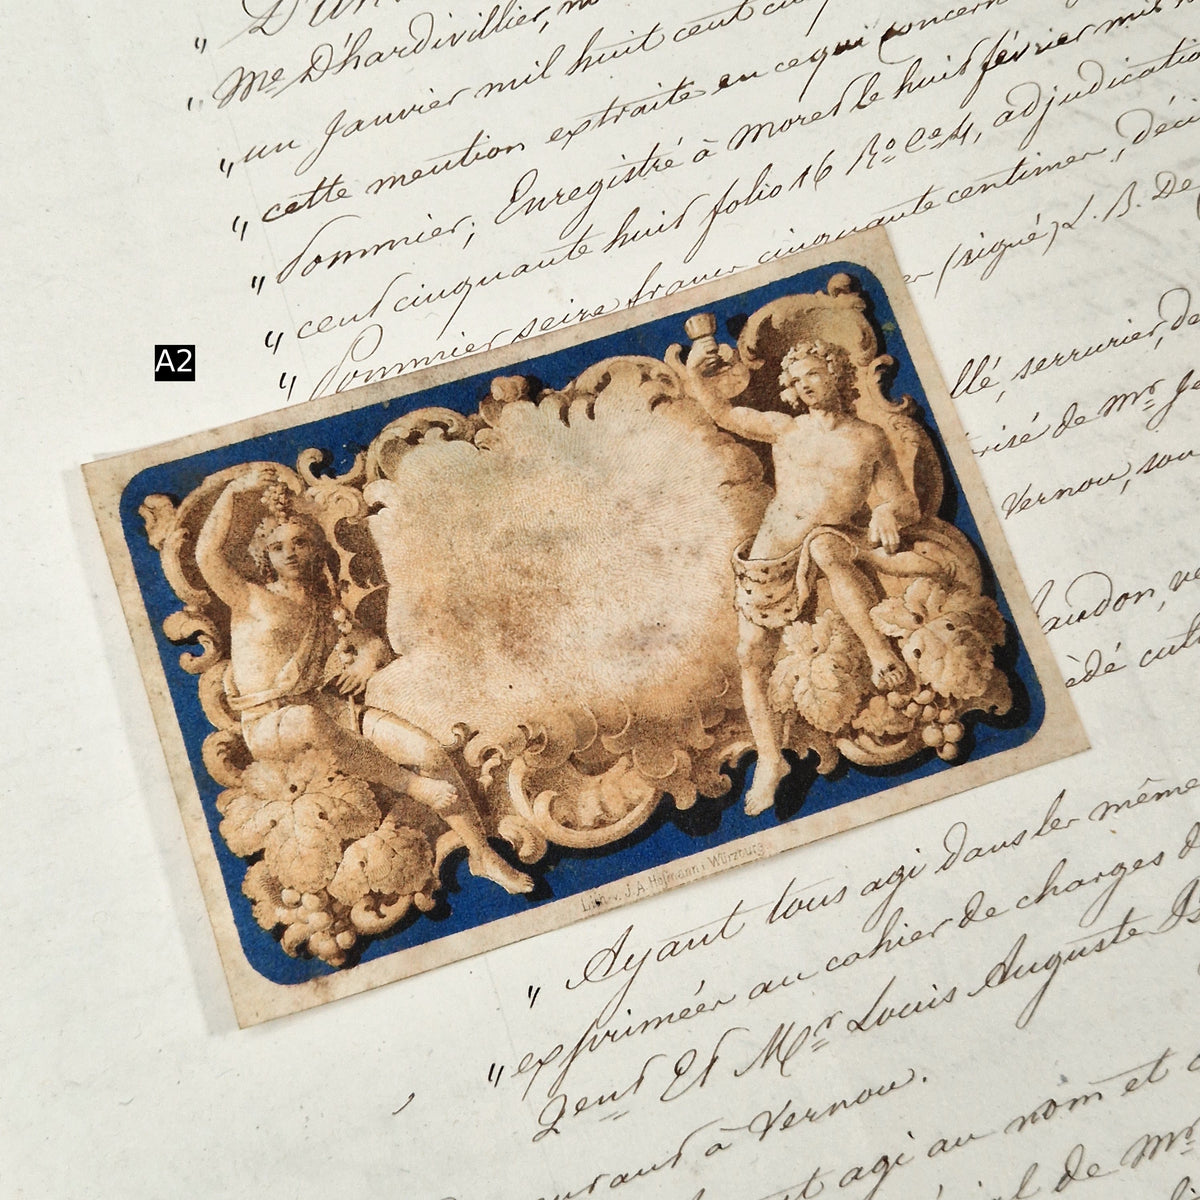 „ D'un
„ Me Dhardivillier, n
„ un Janvier mil huit cent cin
„ cette mention extraite en ce qui concern
„ Pommier; Enregistré à Moret le huit février mil h
„ cent cinquante huit folio 16 Ro Ce 4, adjudicatio
„ Pommier seize francs cinquante centimes, déci
er (signé) L. B. De
A2
llé, serrurier, de
risé de Mr Ja
Vernou, sou
audon, ve
èdé cult
Lith. v. J. A. Hofmann i. Würzburg
„ Ayant tous agi dans les même
„ expriméés au cahier de charges d
2ent Et Mr Louis Auguste
urant à Vernou.
t agi au nom et
l de Mr